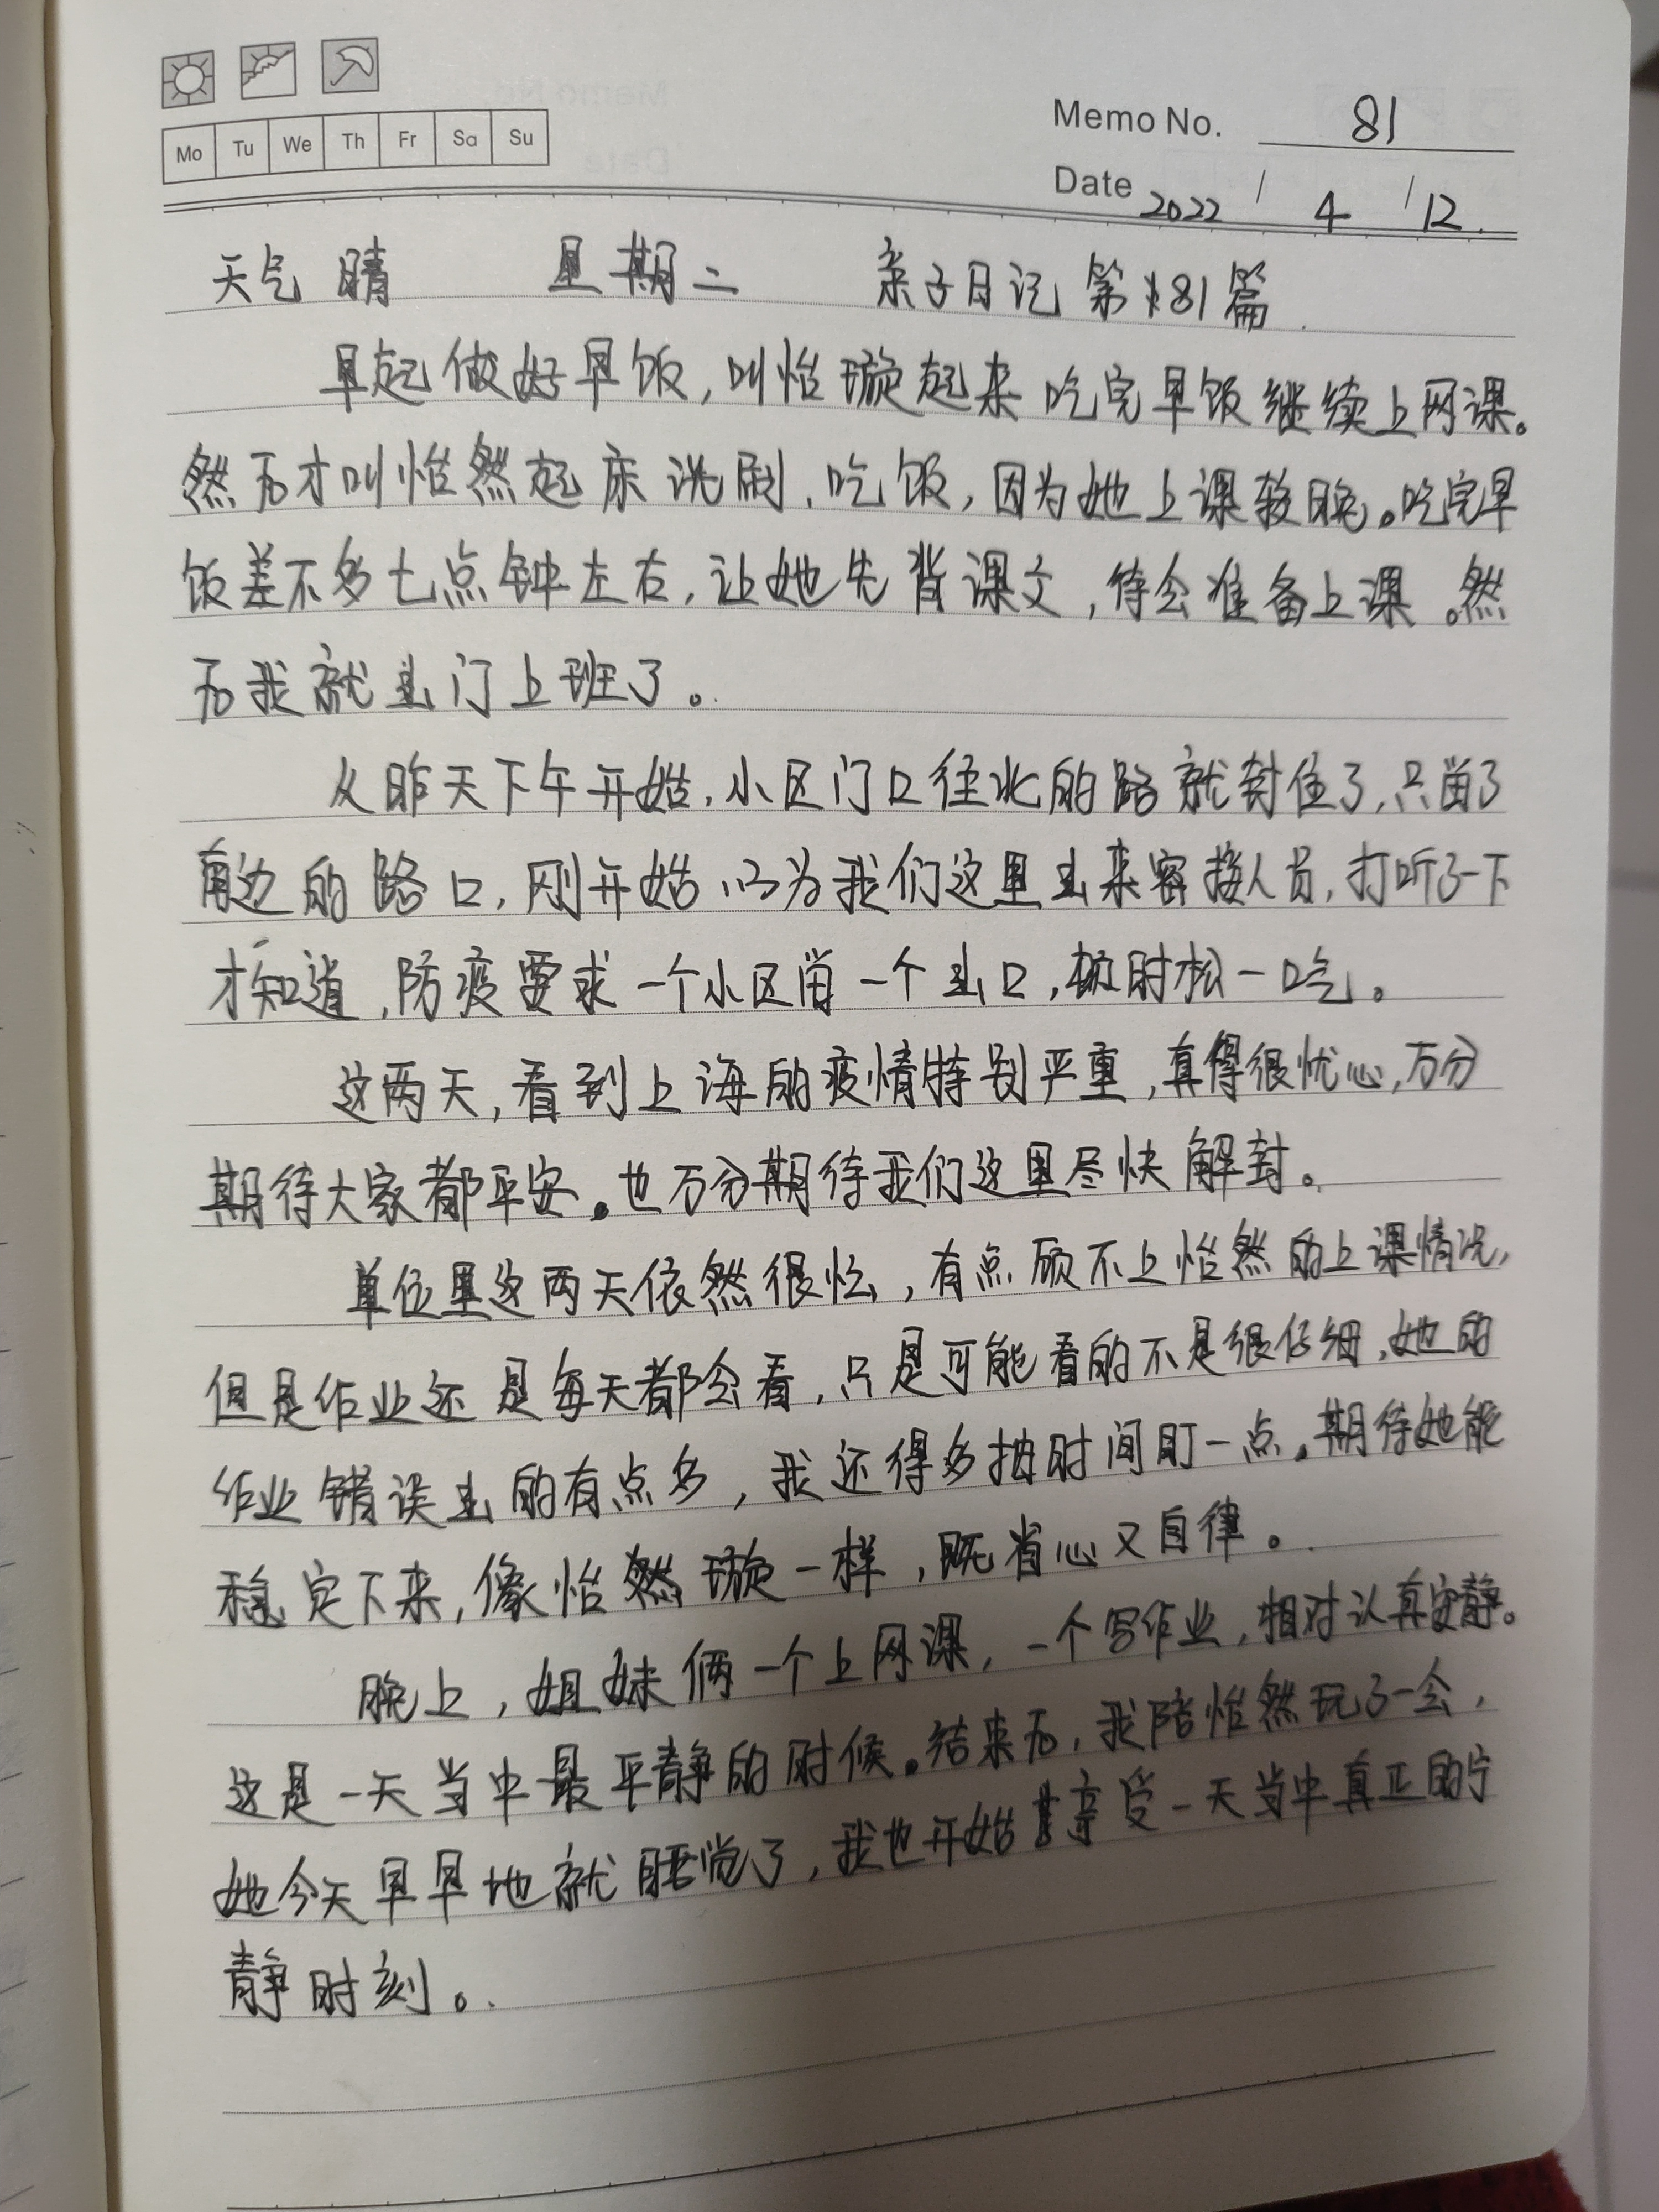 Mo Tu We Th Fr Sa Su
Memo No. 81
Date 2022 / 4 / 12.
天气 晴 星期二 亲子日记 第81篇.
早起做好早饭,叫怡璇起来吃完早饭继续上网课。
然后才叫怡然起床洗刷、吃饭,因为她上课较晚。吃完早
饭差不多七点钟左右,让她先背课文,待会准备上课。然
后我就出门上班了。
从昨天下午开始,小区门口往北的路就封住了,只留了
南边的路口,刚开始以为我们这里出来密接人员,打听了一下
才知道,防疫要求一个小区留一个出口,顿时松一口气。
这两天,看到上海的疫情特别严重,真得很忧心,万分
期待大家都平安。也万分期待我们这里尽快解封。
单位里这两天依然很忙,有点顾不上怡然的上课情况,
但是作业还是每天都会看,只是可能看的不是很仔细,她的
作业错误出的有点多,我还得多抽时间盯一点。期待她能
稳定下来,像怡璇一样,既省心又自律。
晚上,姐妹俩一个上网课,一个写作业,相对认真安静。
这是一天当中最平静的时候。结束后,我陪怡然玩了一会,
她今天早早地就睡觉了,我也开始享受一天当中真正的宁
静时刻。